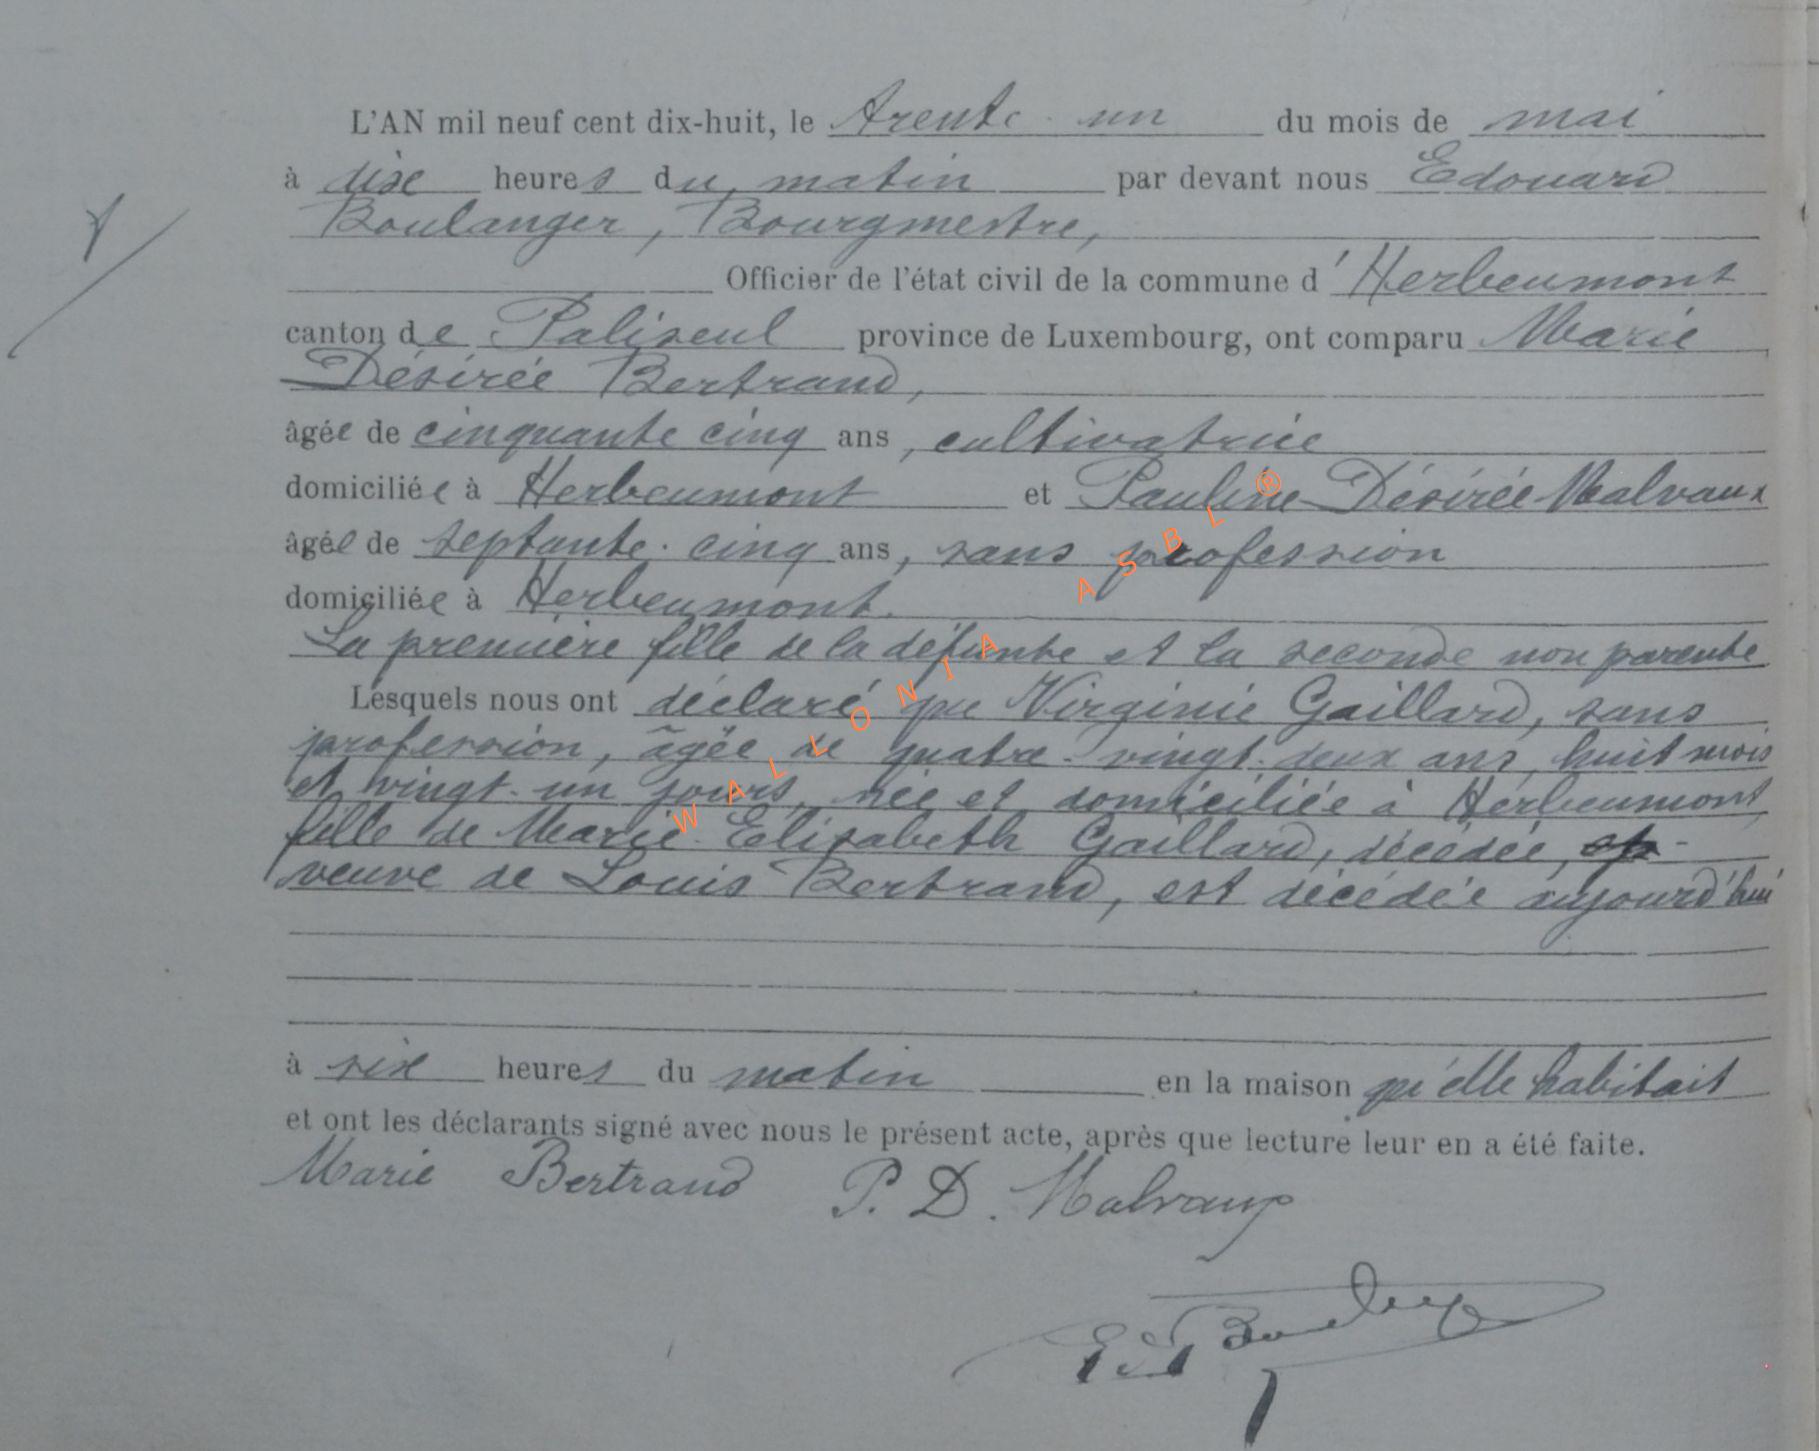 L'AN mil neuf cent dix-huit, le trente-un du mois de mai
à dix heures du matin par devant nous Edouard
Boulanger, Bourgmestre,
Officier de l'état civil de la commune d'Herbeumont
canton de Paliseul province de Luxembourg, ont comparu Marie
Désirée Bertrand,
âgée de cinquante cinq ans, cultivatrice
domiciliée à Herbeumont et Pauline Désirée Malvaux
âgée de septante-cinq ans, sans profession
domiciliée à Herbeumont.
La première fille de la défunte et la seconde non parente
Lesquels nous ont déclaré que Virginie Gaillard, sans
profession, âgée de quatre-vingt-deux ans, huit mois
et vingt-un jours, née et domiciliée à Herbeumont,
fille de Marie-Elisabeth Gaillard, décédée,
veuve de Louis Bertrand, est décédée aujourd'hui
à six heures du matin en la maison qu'elle habitait
et ont les déclarants signé avec nous le présent acte, après que lecture leur en a été faite.
Marie Bertrand P. D. Malvaux
Ed Boulanger
WALLONIA ASBL ®